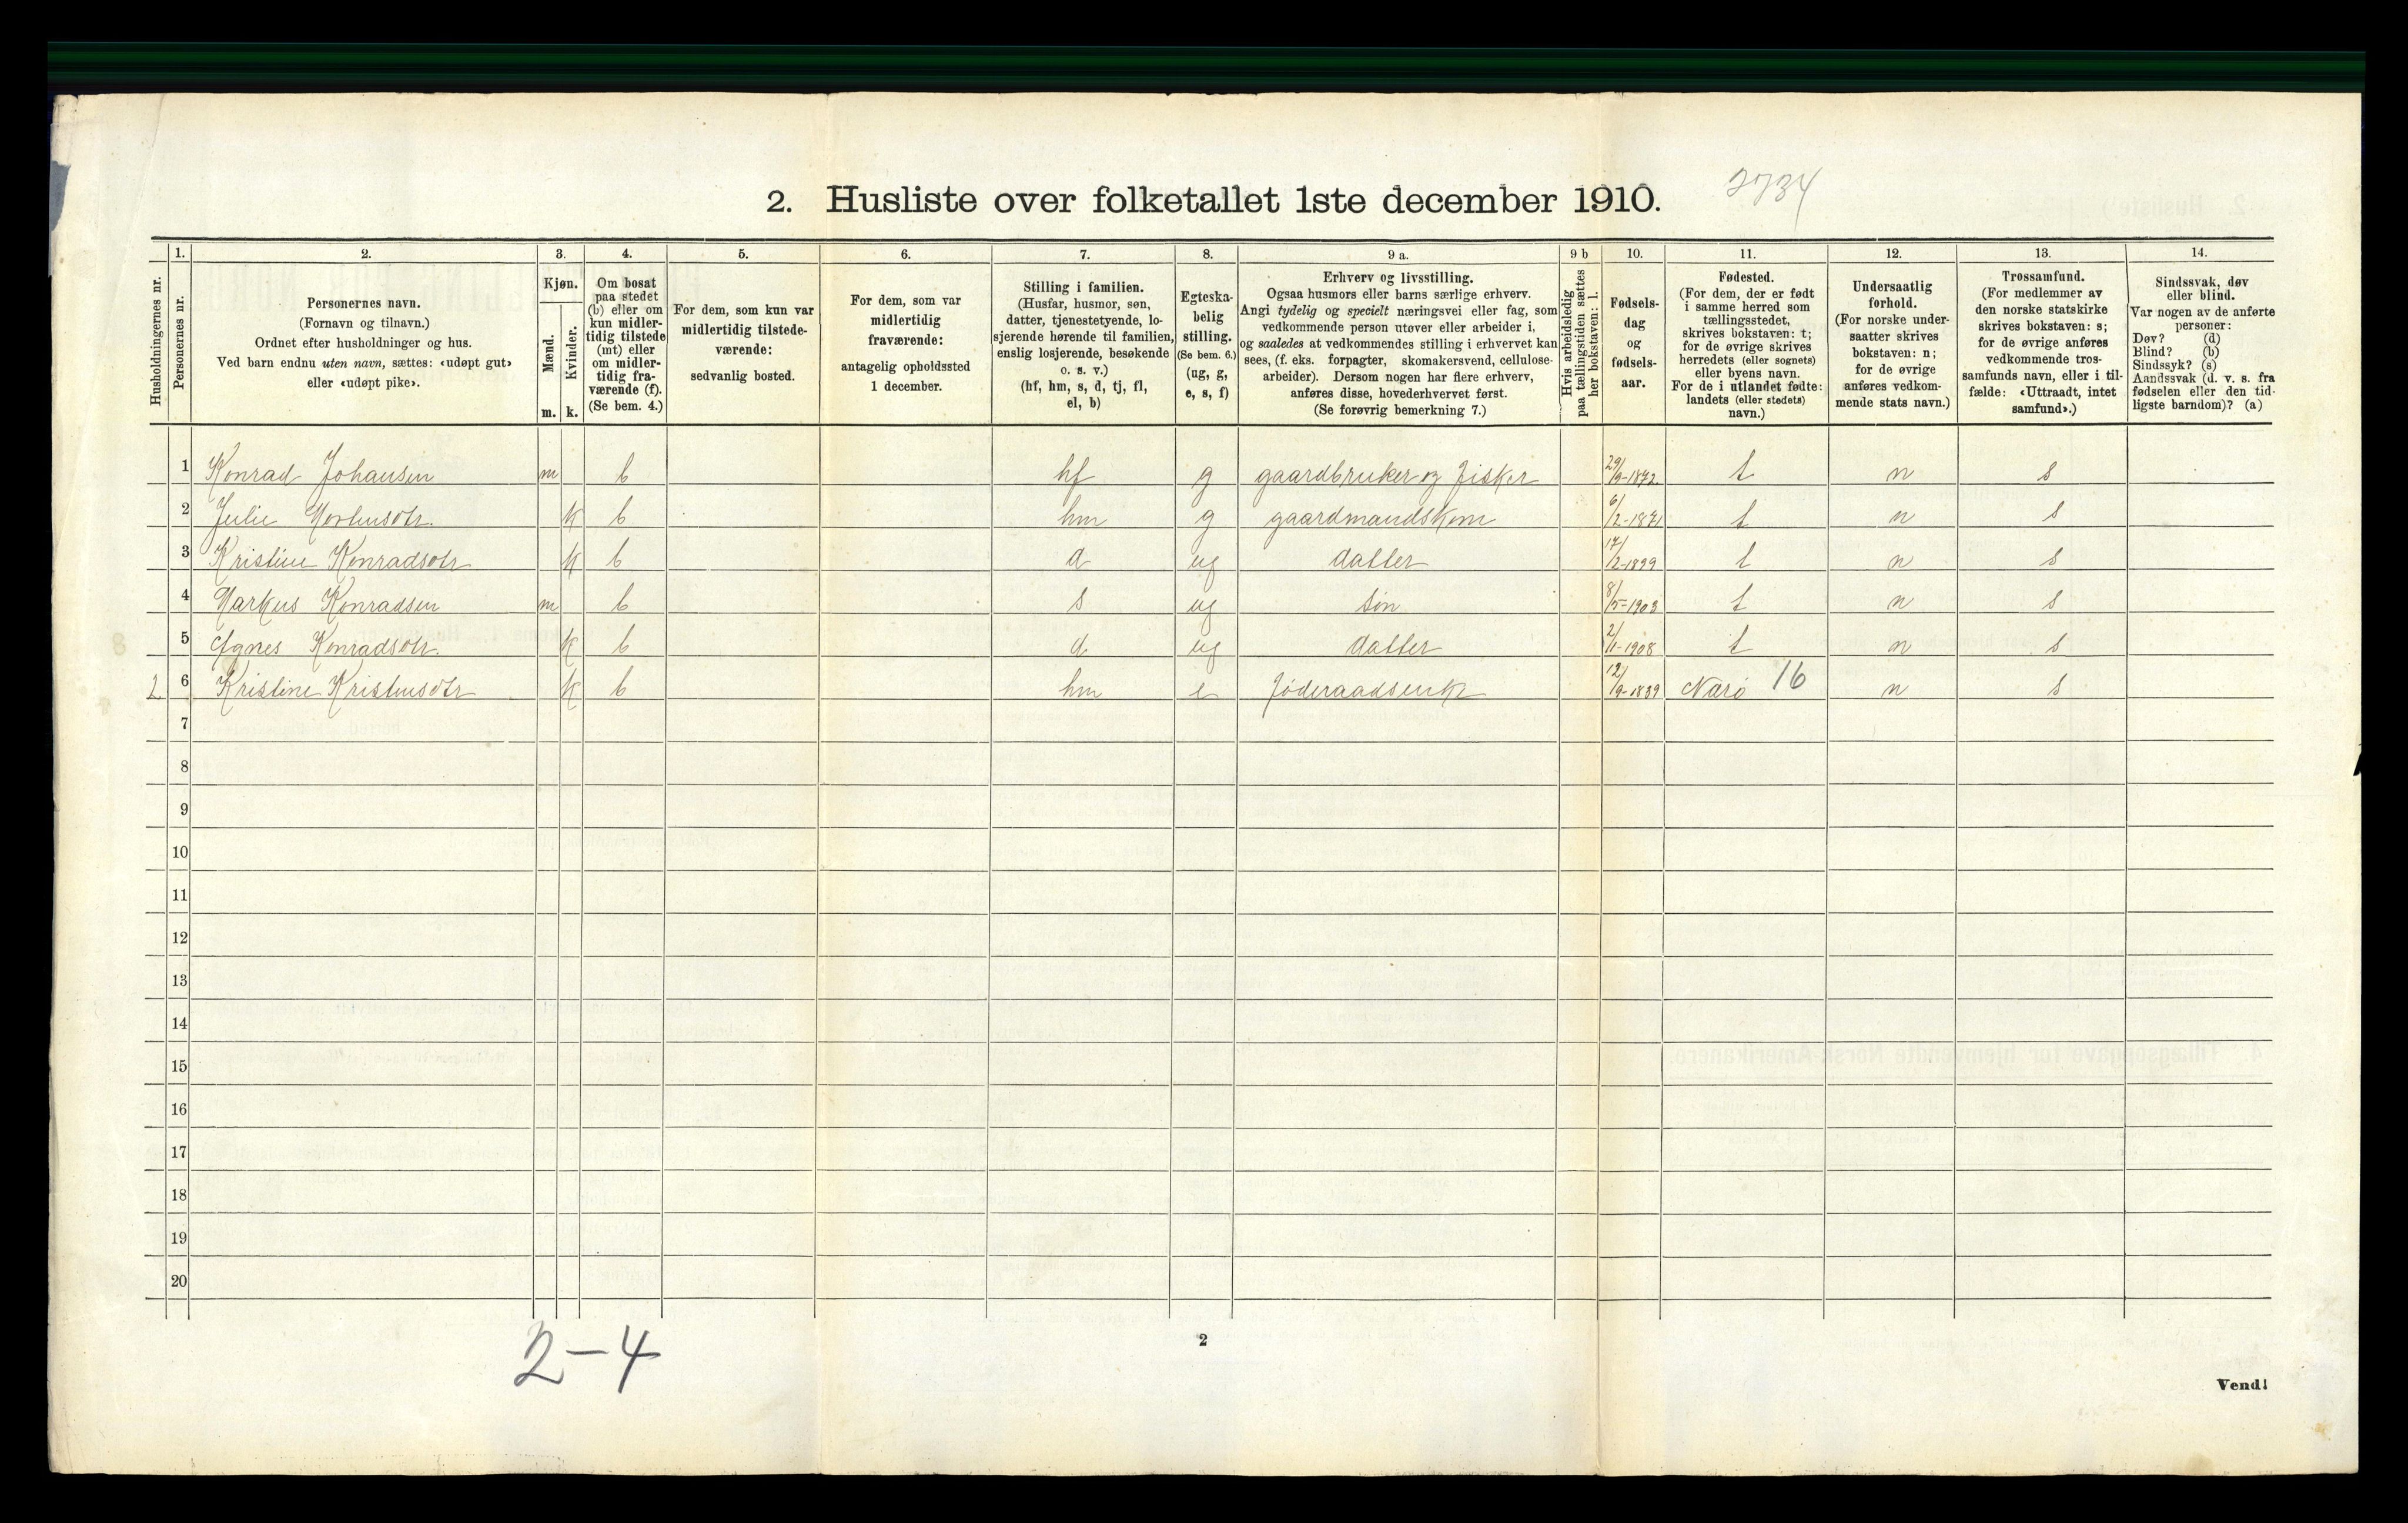 2. Husliste over folketallet 1ste december 1910. 2734
Husholdningernes nr.
1. Personernes nr.
2. Personernes navn.
(Fornavn og tilnavn.)
Ordnet efter husholdninger og hus.
Ved barn endnu uten navn, sættes: «udøpt gut»
eller «udøpt pike».
3. Kjøn.
Mænd. m.
Kvinder. k.
4. Om bosat
paa stedet
(b) eller om
kun midler-
tidig tilstede
(mt) eller
om midler-
tidig fra-
værende (f).
(Se bem. 4.)
5. For dem, som kun var
midlertidig tilstede-
værende:
sedvanlig bosted.
6. For dem, som var
midlertidig
fraværende:
antagelig opholdssted
1 december.
7. Stilling i familien.
(Husfar, husmor, søn,
datter, tjenestetyende, lo-
sjerende hørende til familien,
enslig losjerende, besøkende
o. s. v.)
(hf, hm, s, d, tj, fl,
el, b)
8. Egteska-
belig
stilling.
(Se bem. 6.)
(ug, g,
e, s, f)
9 a. Erhverv og livsstilling.
Ogsaa husmors eller barns særlige erhverv.
Angi tydelig og specielt næringsvei eller fag, som
vedkommende person utøver eller arbeider i,
og saaledes at vedkommendes stilling i erhvervet kan
sees, (f. eks. forpagter, skomakersvend, cellulose-
arbeider). Dersom nogen har flere erhverv,
anføres disse, hovederhvervet først.
(Se forøvrig bemerkning 7.)
9 b Hvis arbeidsledig
paa tællingstiden sættes
her bokstaven: l.
10. Fødsels-
dag
og
fødsels-
aar.
11. Fødested.
(For dem, der er født
i samme herred som
tællingsstedet,
skrives bokstaven: t;
for de øvrige skrives
herredets (eller sognets)
eller byens navn.
For de i utlandet fødte:
landets (eller stedets)
navn.)
12. Undersaatlig
forhold.
(For norske under-
saatter skrives
bokstaven: n;
for de øvrige
anføres vedkom-
mende stats navn.)
13. Trossamfund.
(For medlemmer av
den norske statskirke
skrives bokstaven: s;
for de øvrige anføres
vedkommende tros-
samfunds navn, eller i til-
fælde: «Uttraadt, intet
samfund».)
14. Sindssvak, døv
eller blind.
Var nogen av de anførte
personer:
Døv? (d)
Blind? (b)
Sindssyk? (s)
Aandssvak (d. v. s. fra
fødselen eller den tid-
ligste barndom)? (a)
1 Konrad Johansen m b hf g gaardbruker og fisker 29/9-1872 t n s
2 Julie k b hm g gaardmandskone 6/2-1871 t n s
3 Kristine Konradsdtr k b d ug datter 17/2-1899 t n s
4 Markus Konradsen m b s ug søn 8/5-1903 t n s
5 Agnes Konradsdtr. k b d ug datter 2/11-1908 t n s
2 6 Kristine k b hm e føderaadsenke 12/9-1839 Nærø 16 n s
7
8
9
10
11
12
13
14
15
16
17
18
19
20
2-4
2
Vend!